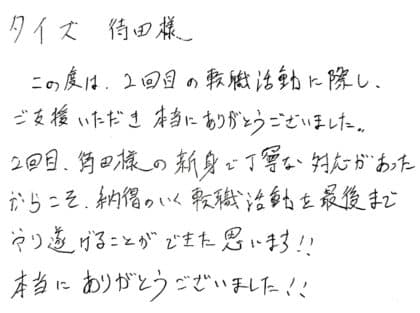 タイズ 待田様
この度は、2回目の転職活動に際し、
ご支援いただき本当にありがとうございました。
2回目、角田様の新身で丁寧な対応があった
からこそ、納得のいく転職活動を最後まで
やり遂げることができた思います!!
本当にありがとうございました!!